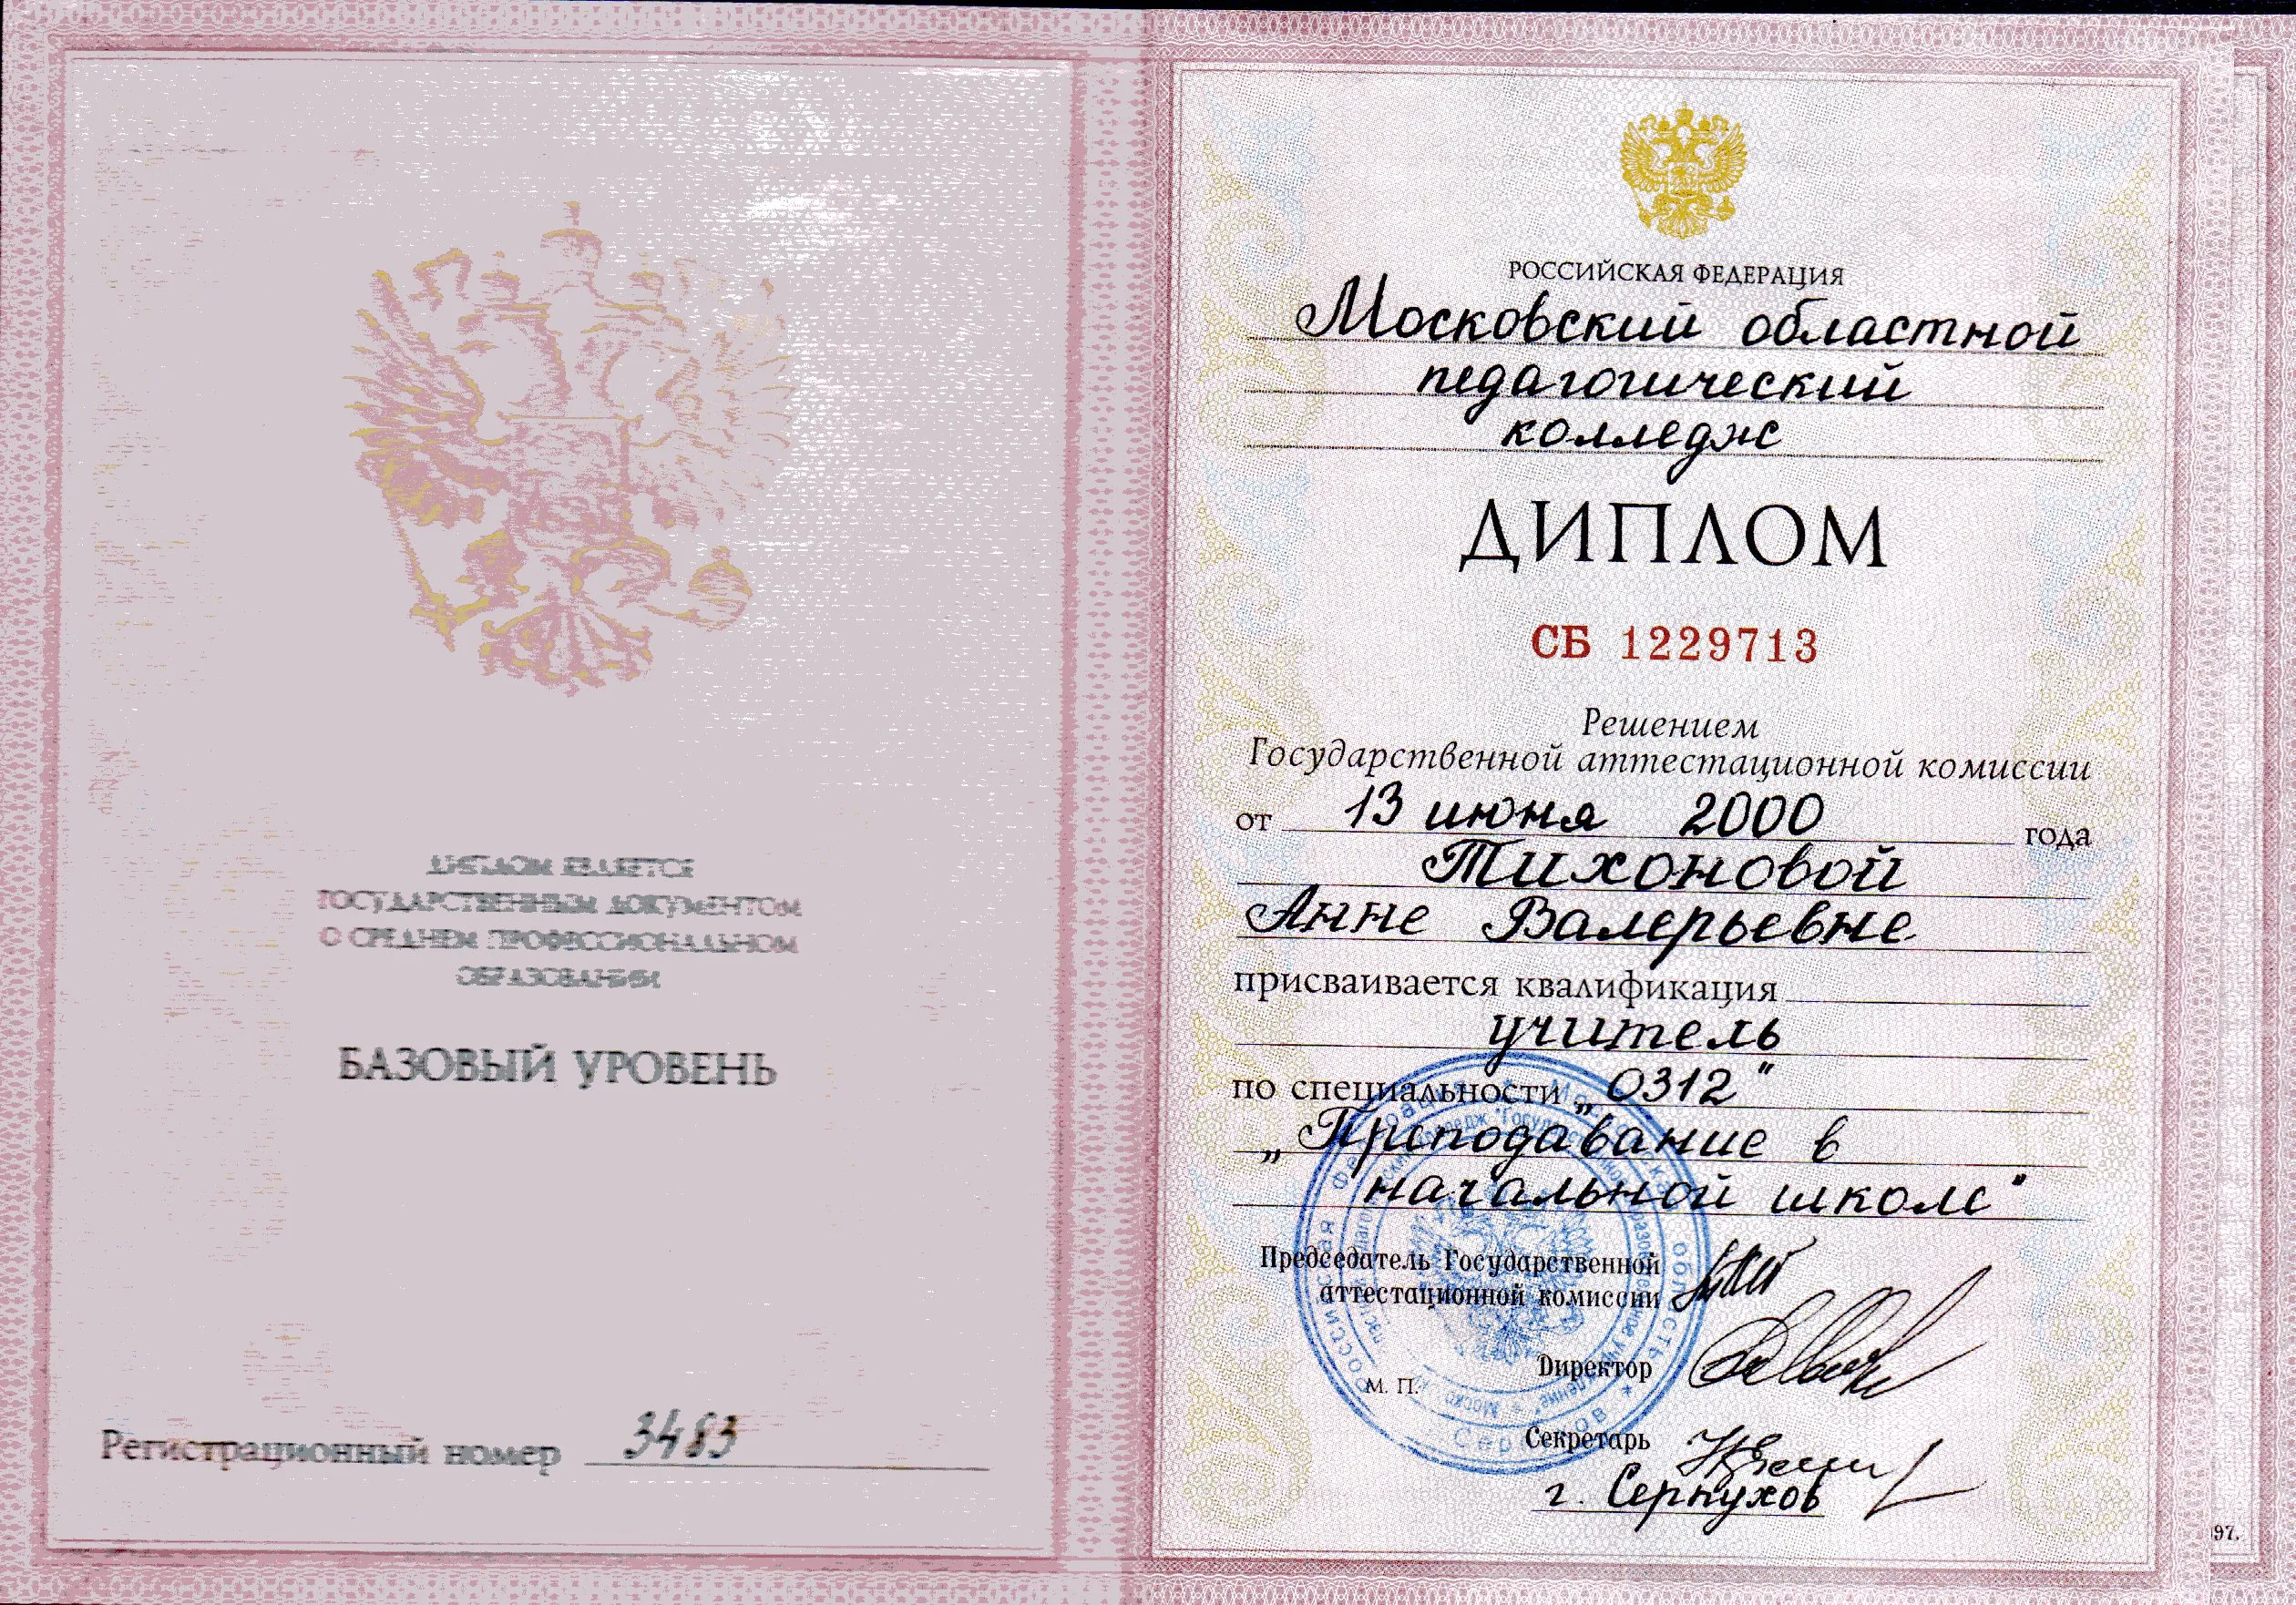 ДИПЛОМ ЯВЛЯЕТСЯ
ГОСУДАРСТВЕННЫМ ДОКУМЕНТОМ
О СРЕДНЕМ ПРОФЕССИОНАЛЬНОМ
ОБРАЗОВАНИИ
БАЗОВЫЙ УРОВЕНЬ
Регистрационный номер 3483
РОССИЙСКАЯ ФЕДЕРАЦИЯ
Московский областной
педагогический
колледж
ДИПЛОМ
СБ 1229713
Решением
Государственной аттестационной комиссии
от 13 июня 2000 года
Тихоновой
Анне Валерьевне
присваивается квалификация
учитель
по специальности „0312"
„Преподавание в
начальной школе"
Председатель Государственной
аттестационной комиссии
Директор
М. П.
Секретарь
г. Серпухов
97.